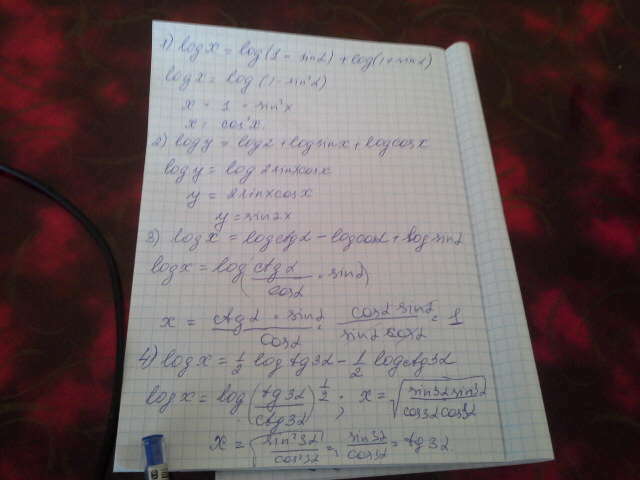 1) log x = log(1 - sin α) + log(1 + sin α)
log x = log (1 - sin²α)
x = 1 - sin²x
x = cos²x.
2) log y = log 2 + log sin x + log cos x
log y = log 2 sin x cos x
y = 2 sin x cos x
y = sin 2x
3) log x = log ctg α - log cos α + log sin α
log x = log (ctg α / cos α · sin α)
x = ctg α · sin α / cos α = cos α sin α / sin α cos α = 1
4) log x = 1/2 log tg 3α - 1/2 log ctg 3α
log x = log (tg 3α / ctg 3α)^1/2 ; x = √(sin 3α sin 3α / cos 3α cos 3α)
x = √(sin² 3α / cos² 3α) = sin 3α / cos 3α = tg 3α.